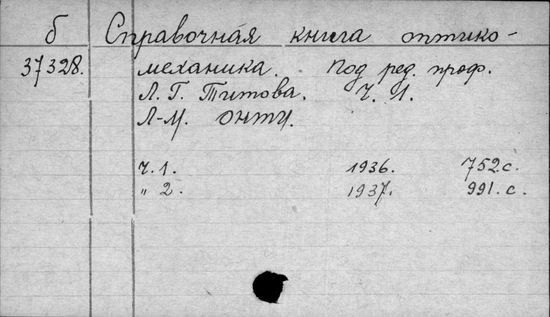 б Справочная книга оптико-
37328. механика. Под ред. проф.
Л. Г. Титова. Ч. 1.
Л-М. ОНТИ.
Ч. 1. 1936. 752 с.
" 2. 1937. 991. с.